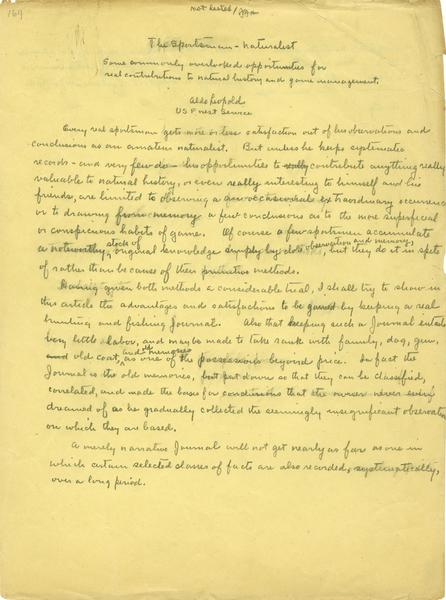 169
Not dated
The Sportsman-Naturalist
Some commonly overlooked opportunities for
real contributions to natural history and game management.
Aldo Leopold
US Forest Service
Every real sportsman gets more or less satisfaction out of his observations and
conclusions as an amateur naturalist. But unless he keeps systematic
records - and very few do - his opportunities to really contribute anything really
valuable to natural history, or even really interesting to himself and his
friends, are limited to observing extraordinary occurrence
or to drawing from memory a few conclusions as to the more superficial
or conspicuous habits of game. Of course a few sportsmen accumulate
a noteworthy stock of original knowledge simply by close observation and memory, but they do it in spite
of rather than because of their primitive methods.
Having given both methods a considerable trial, I shall try to show in
this article the advantages and satisfactions to be gained by keeping a real
hunting and fishing Journal. Also that keeping such a Journal entails
very little labor, and may be made to take rank with family, dog, gun,
and old coat, and old memories as one of the possessions beyond price. In fact the
Journal is the old memories, but put down so that they can be classified,
correlated, and made the basis for conclusions that the owner never even
dreamed of as he gradually collected the seemingly insignificant observations
on which they are based.
A merely narrative Journal will not get nearly as far as one in
which certain selected classes of facts are also recorded, systematically,
over a long period.